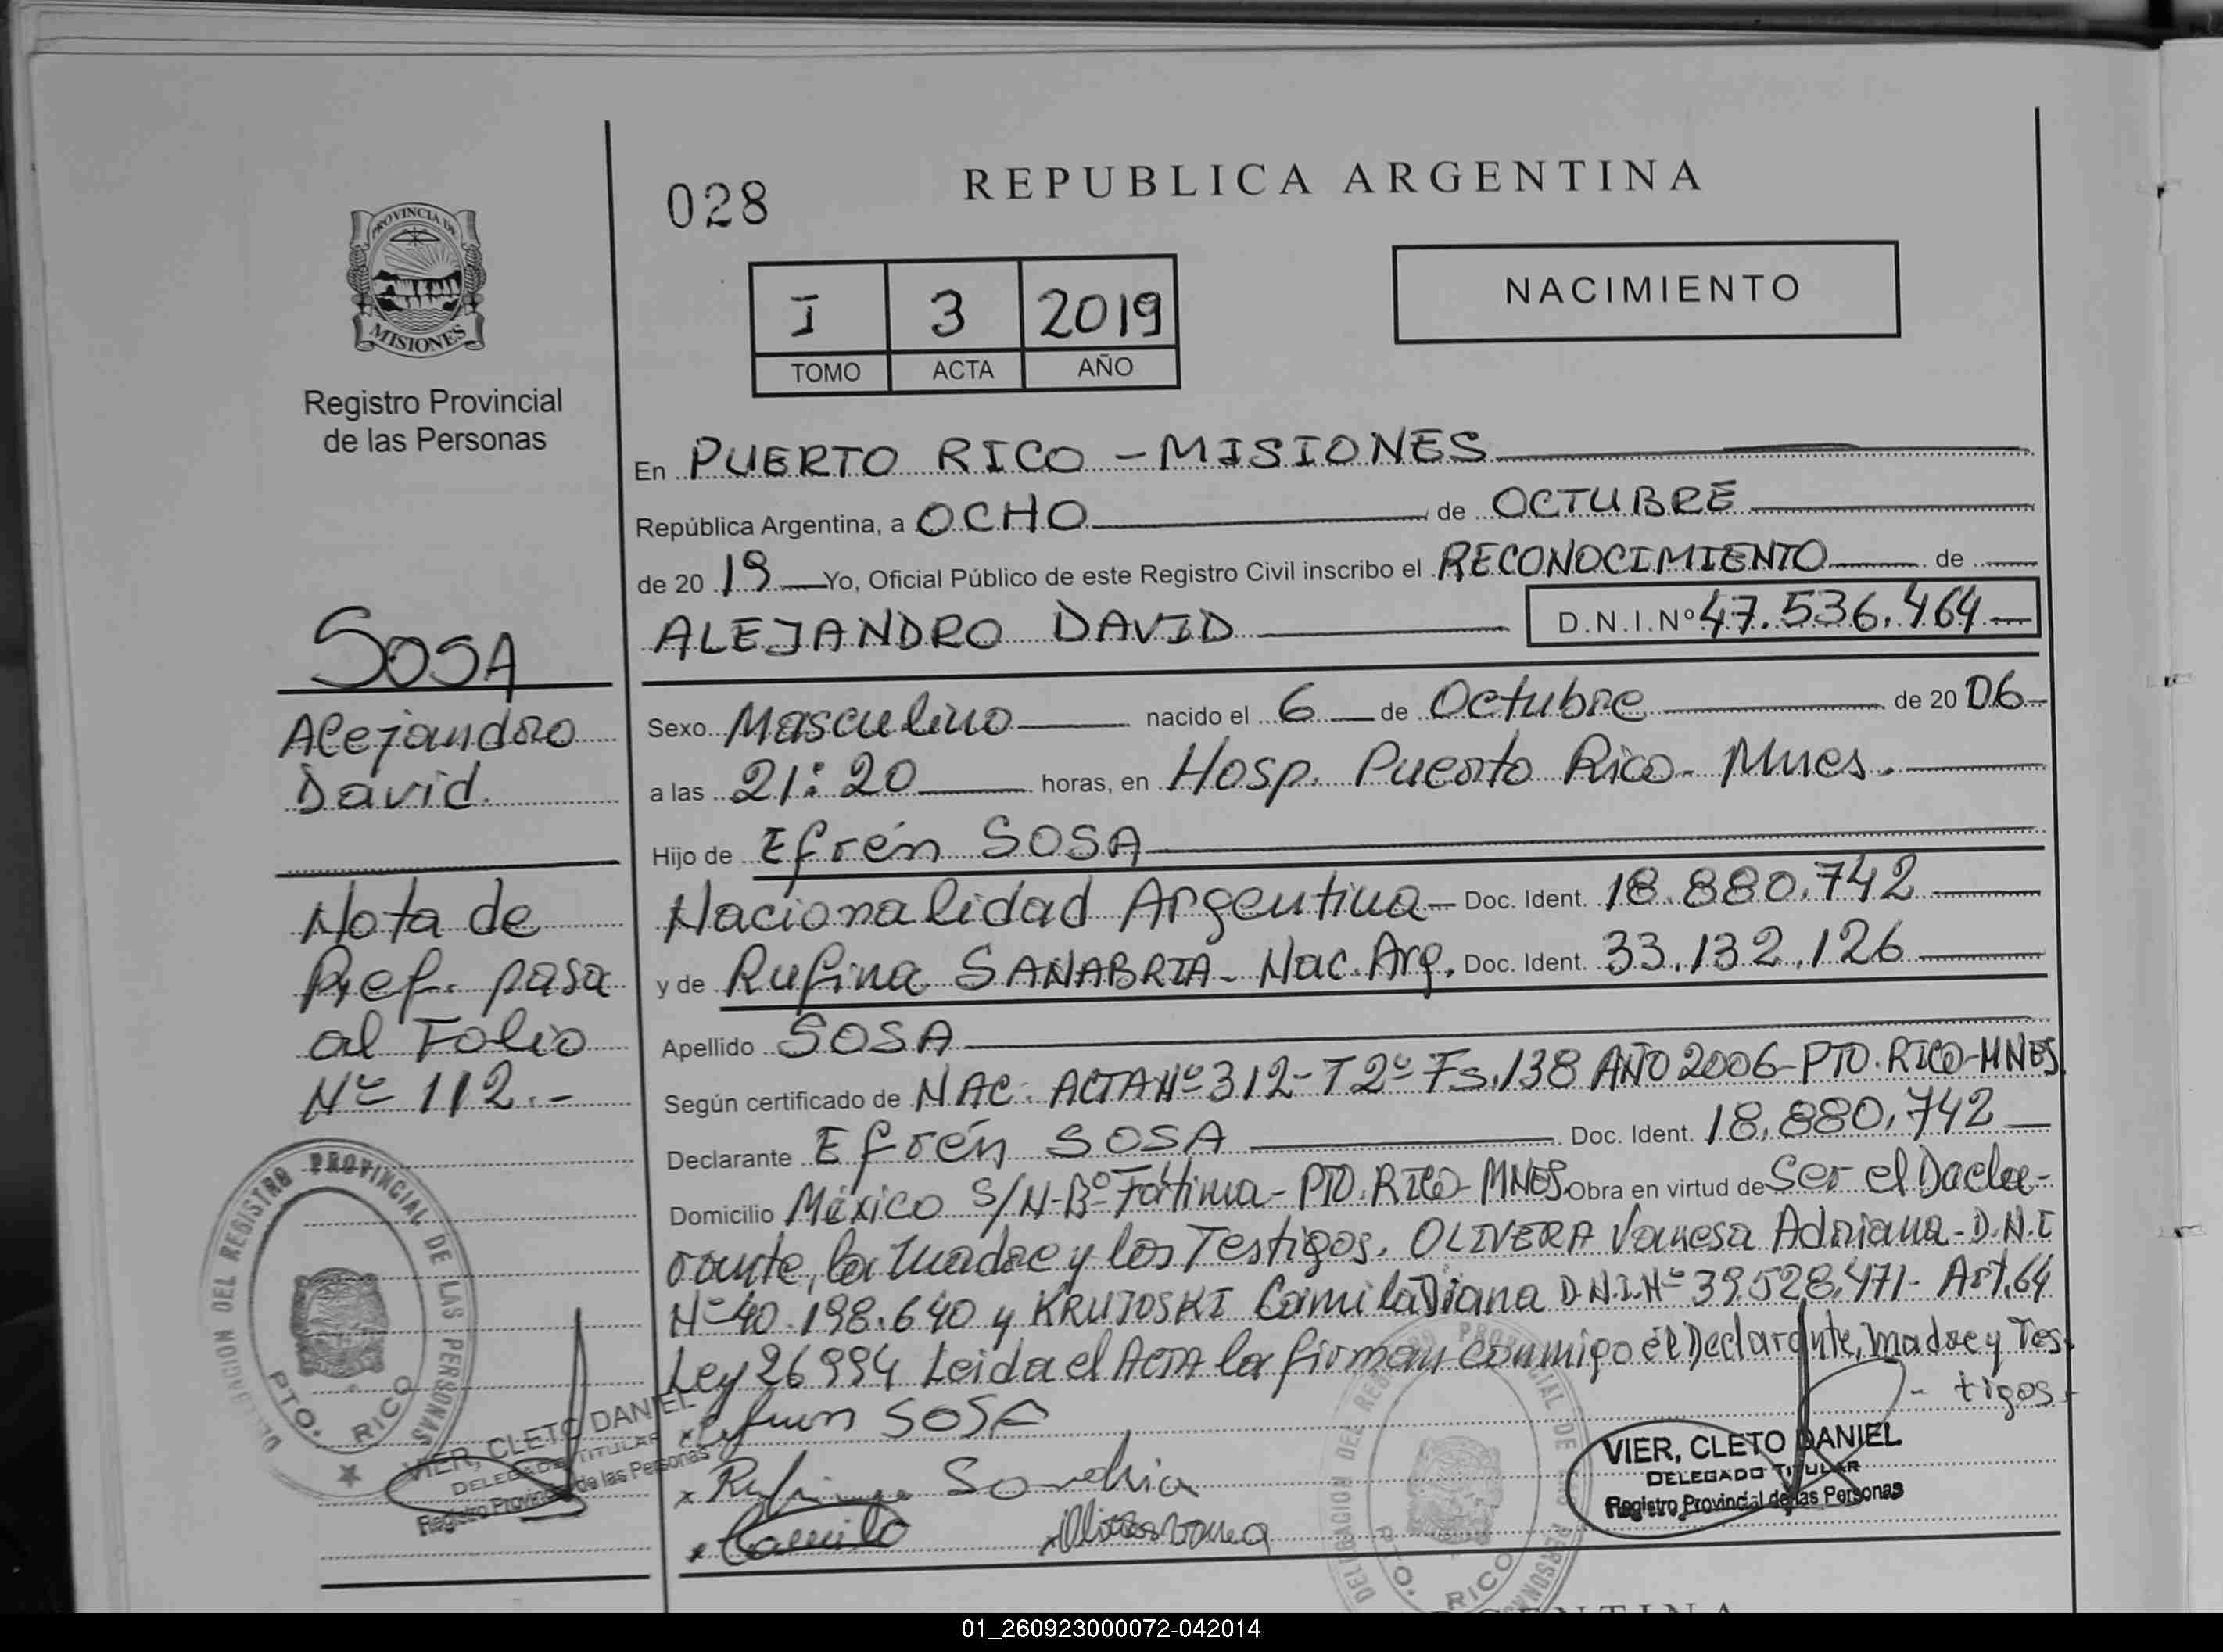 028
REPUBLICA ARGENTINA
PROVINCIA DE
MISIONES
Registro Provincial
de las Personas
I 3 2019
TOMO ACTA AÑO
NACIMIENTO
En PUERTO RICO - MISIONES
República Argentina, a OCHO de OCTUBRE
de 20 19 Yo, Oficial Público de este Registro Civil inscribo el RECONOCIMIENTO de
ALEJANDRO DAVID D.N.I.Nº 47.536.464
Sexo Masculino nacido el 6 de Octubre de 20 06
a las 21:20 horas, en Hosp. Puerto Rico - Mnes.
Hijo de Efrén SOSA
Nacionalidad Argentina - Doc. Ident. 18.880.742
y de Rufina SANABRIA - Nac. Arg. Doc. Ident. 33.132.126
Apellido SOSA
Según certificado de NAC. ACTA Nº 312 - T 2º Fs. 138 AÑO 2006 - PTO. RICO - MNES
Declarante Efrén SOSA Doc. Ident. 18.880.742
Domicilio México S/N - Bº Fátima - PTO. RICO - MNES. Obra en virtud de Ser el Decla-
rante, la madre y los Testigos. OLIVERA Vanesa Adriana - D.N.I
Nº 40.198.640 y KRUJOSKI Camila Diana D.N.I.Nº 39.528.471 - Art. 64
Ley 26994 Leida el Acta la firman conmigo el Declarante, madre y Tes-
tigos
SOSA
Alejandro
David
Nota de
Ref. pasa
al Folio
Nº 112.-
DELEGACION DEL REGISTRO PROVINCIAL DE LAS PERSONAS
PTO. RICO
VIER, CLETO DANIEL
DELEGADO TITULAR
Registro Provincial de las Personas
x Efren SOSA
x Rufina
x Camila x
DELEGACION DEL REGISTRO PROVINCIAL DE LAS PERSONAS
PTO. RICO
VIER, CLETO DANIEL
DELEGADO TITULAR
Registro Provincial de las Personas
01_260923000072-042014